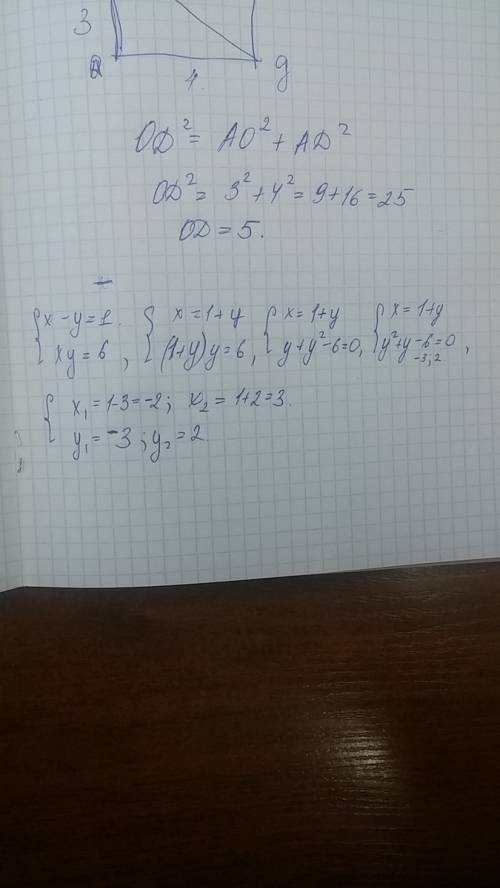 3
a 4. g
OD² = AO² + AD²
OD² = 3² + 4² = 9 + 16 = 25
OD = 5.
{ x - y = 1. { x = 1 + y { x = 1 + y { x = 1 + y
xy = 6 , (1+y)y = 6, y + y² - 6 = 0, y² + y - 6 = 0 ,
-3; 2
{ x₁ = 1-3 = -2; x₂ = 1+2 = 3.
y₁ = -3 ; y₂ = 2